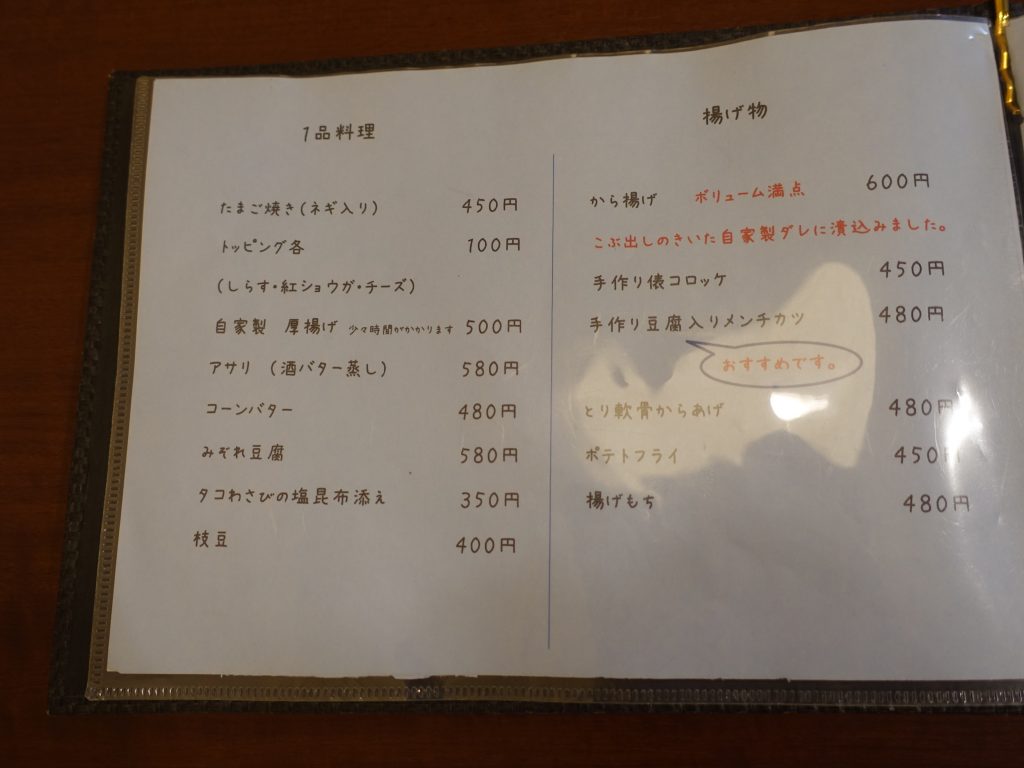 1品料理
たまご焼き(ネギ入り) 450円
トッピング各 100円
(しらす・紅ショウガ・チーズ)
自家製 厚揚げ 少々時間がかかります 500円
アサリ (酒バター蒸し) 580円
コーンバター 480円
みぞれ豆腐 580円
タコわさびの塩昆布添え 350円
枝豆 400円
揚げ物
から揚げ ボリューム満点 600円
こぶ出しのきいた自家製ダレに漬込みました。
手作り俵コロッケ 450円
手作り豆腐入りメンチカツ 480円
おすすめです。
とり軟骨からあげ 480円
ポテトフライ 450円
揚げもち 480円